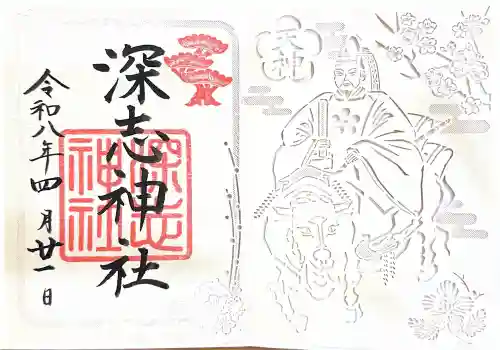 深志神社
令和八年四月廿一日
深志
神社
天神